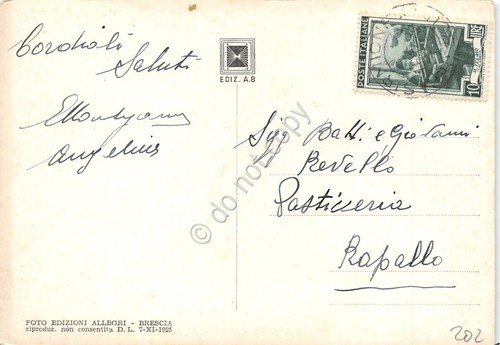 Cordiali
Saluti
Angelina
EDIZ. A.B
POSTE ITALIANE
10
LIRE
Sig. Batt. e Giovanni
Revello
Pasticceria
Rapallo
do not copy
FOTO EDIZIONI ALLEGRI - BRESCIA
riproduz. non consentita D. L. 7-XI-1925
202